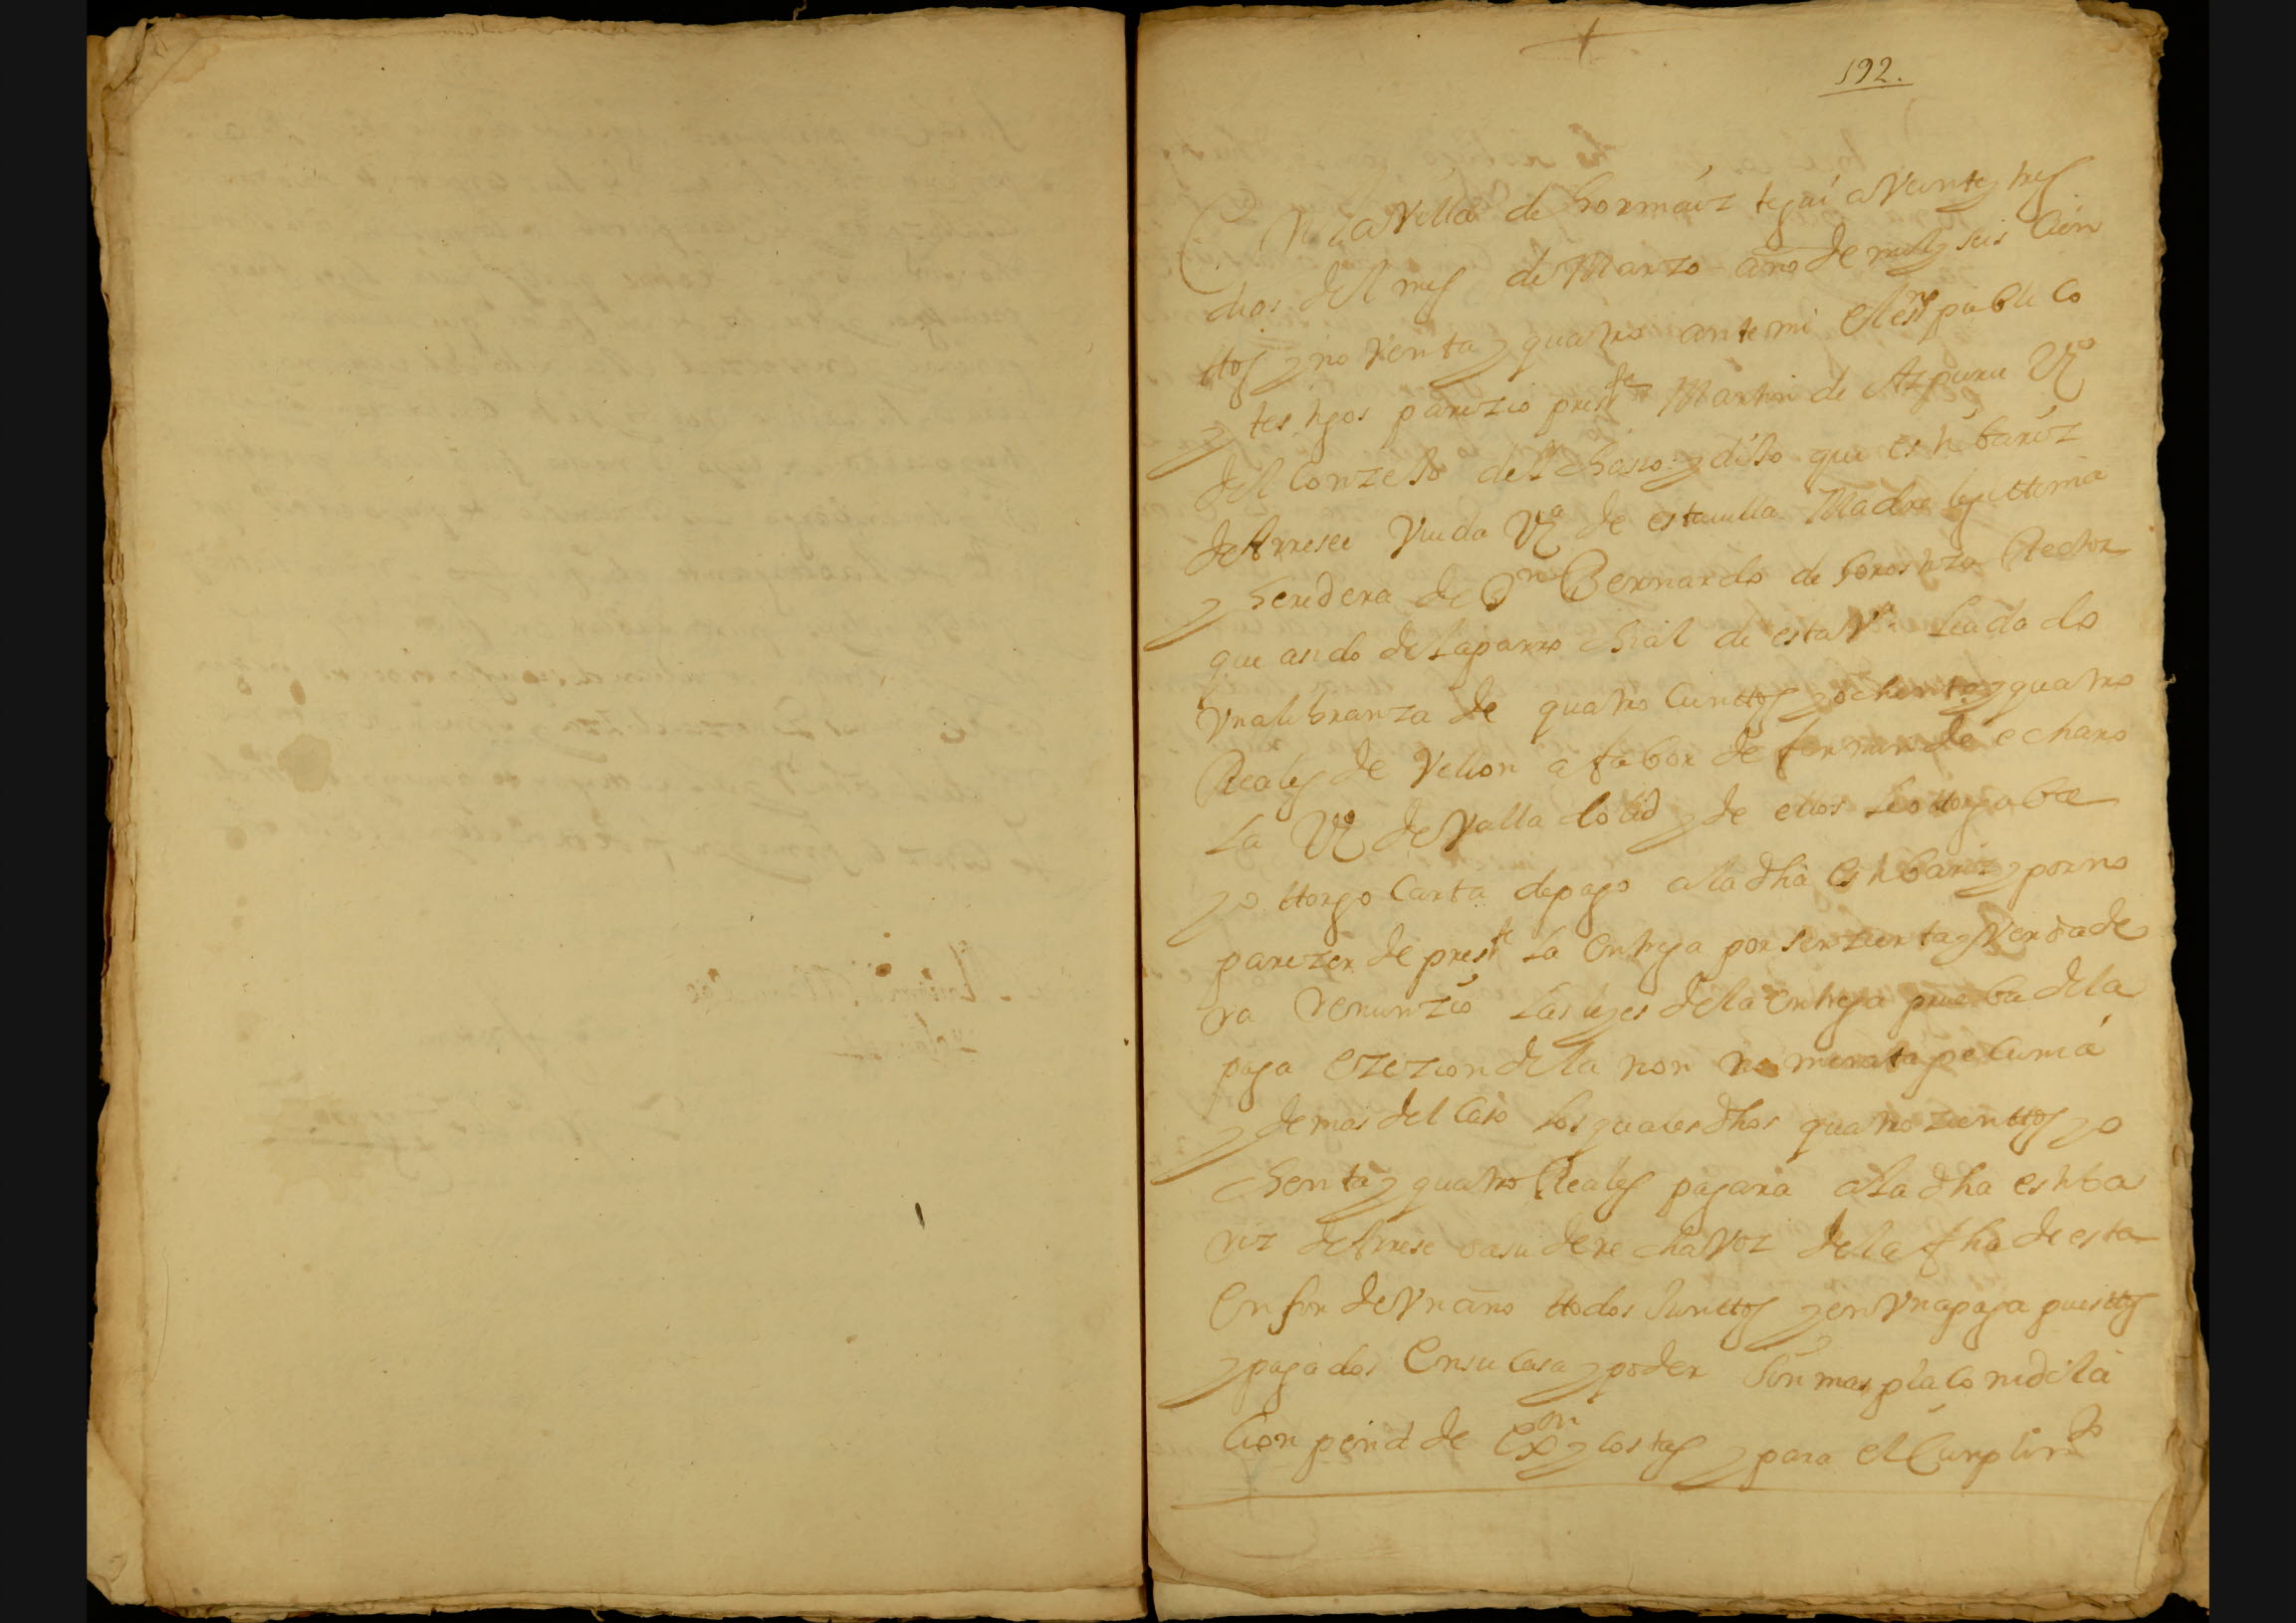 192.
En la Villa de hormaiztegui a Veinte y tres
dias del mes de Marzo año de mil y seis cien
ttos y noventa y quatro ante mi el essno publico
y testigos parezio preste Martin de Azpuru Vº
del Conzejo de Ichaso y dijo que estibariz
de Arrese Viuda Vª de esta villa Madre lexittima
y heredera de Dn Bernardo de Gorostizu Rector
que a sido de la parrochial de esta Vª lea dado
Vna libranza de quatro cienttos y ochenta y quatro
Reales de Vellon a fabor de fermin de echano
la Vº de Valladolid y de ellos le ottorgaba
y ottorgo Carta de pago a la dha Estibariz y por no
parezer de preste la entrega por ser zierta y Verdade
ra renunzio las leyes de la entrega prueba de la
paga ezezion de la non numerata pecunia
y demas del Caso los quales dhos quatrozienttos y o
chenta y quatro Reales pagara a la dha estiba
riz de Arrese o a su derecha Voz de la fha de esta
en fin de Vn año ttodos Junttos y en Vna paga puesttos
y pagados en su Casa y poder sin mas plaço ni dila
cion pena de exon y costas y para el Cumplimto